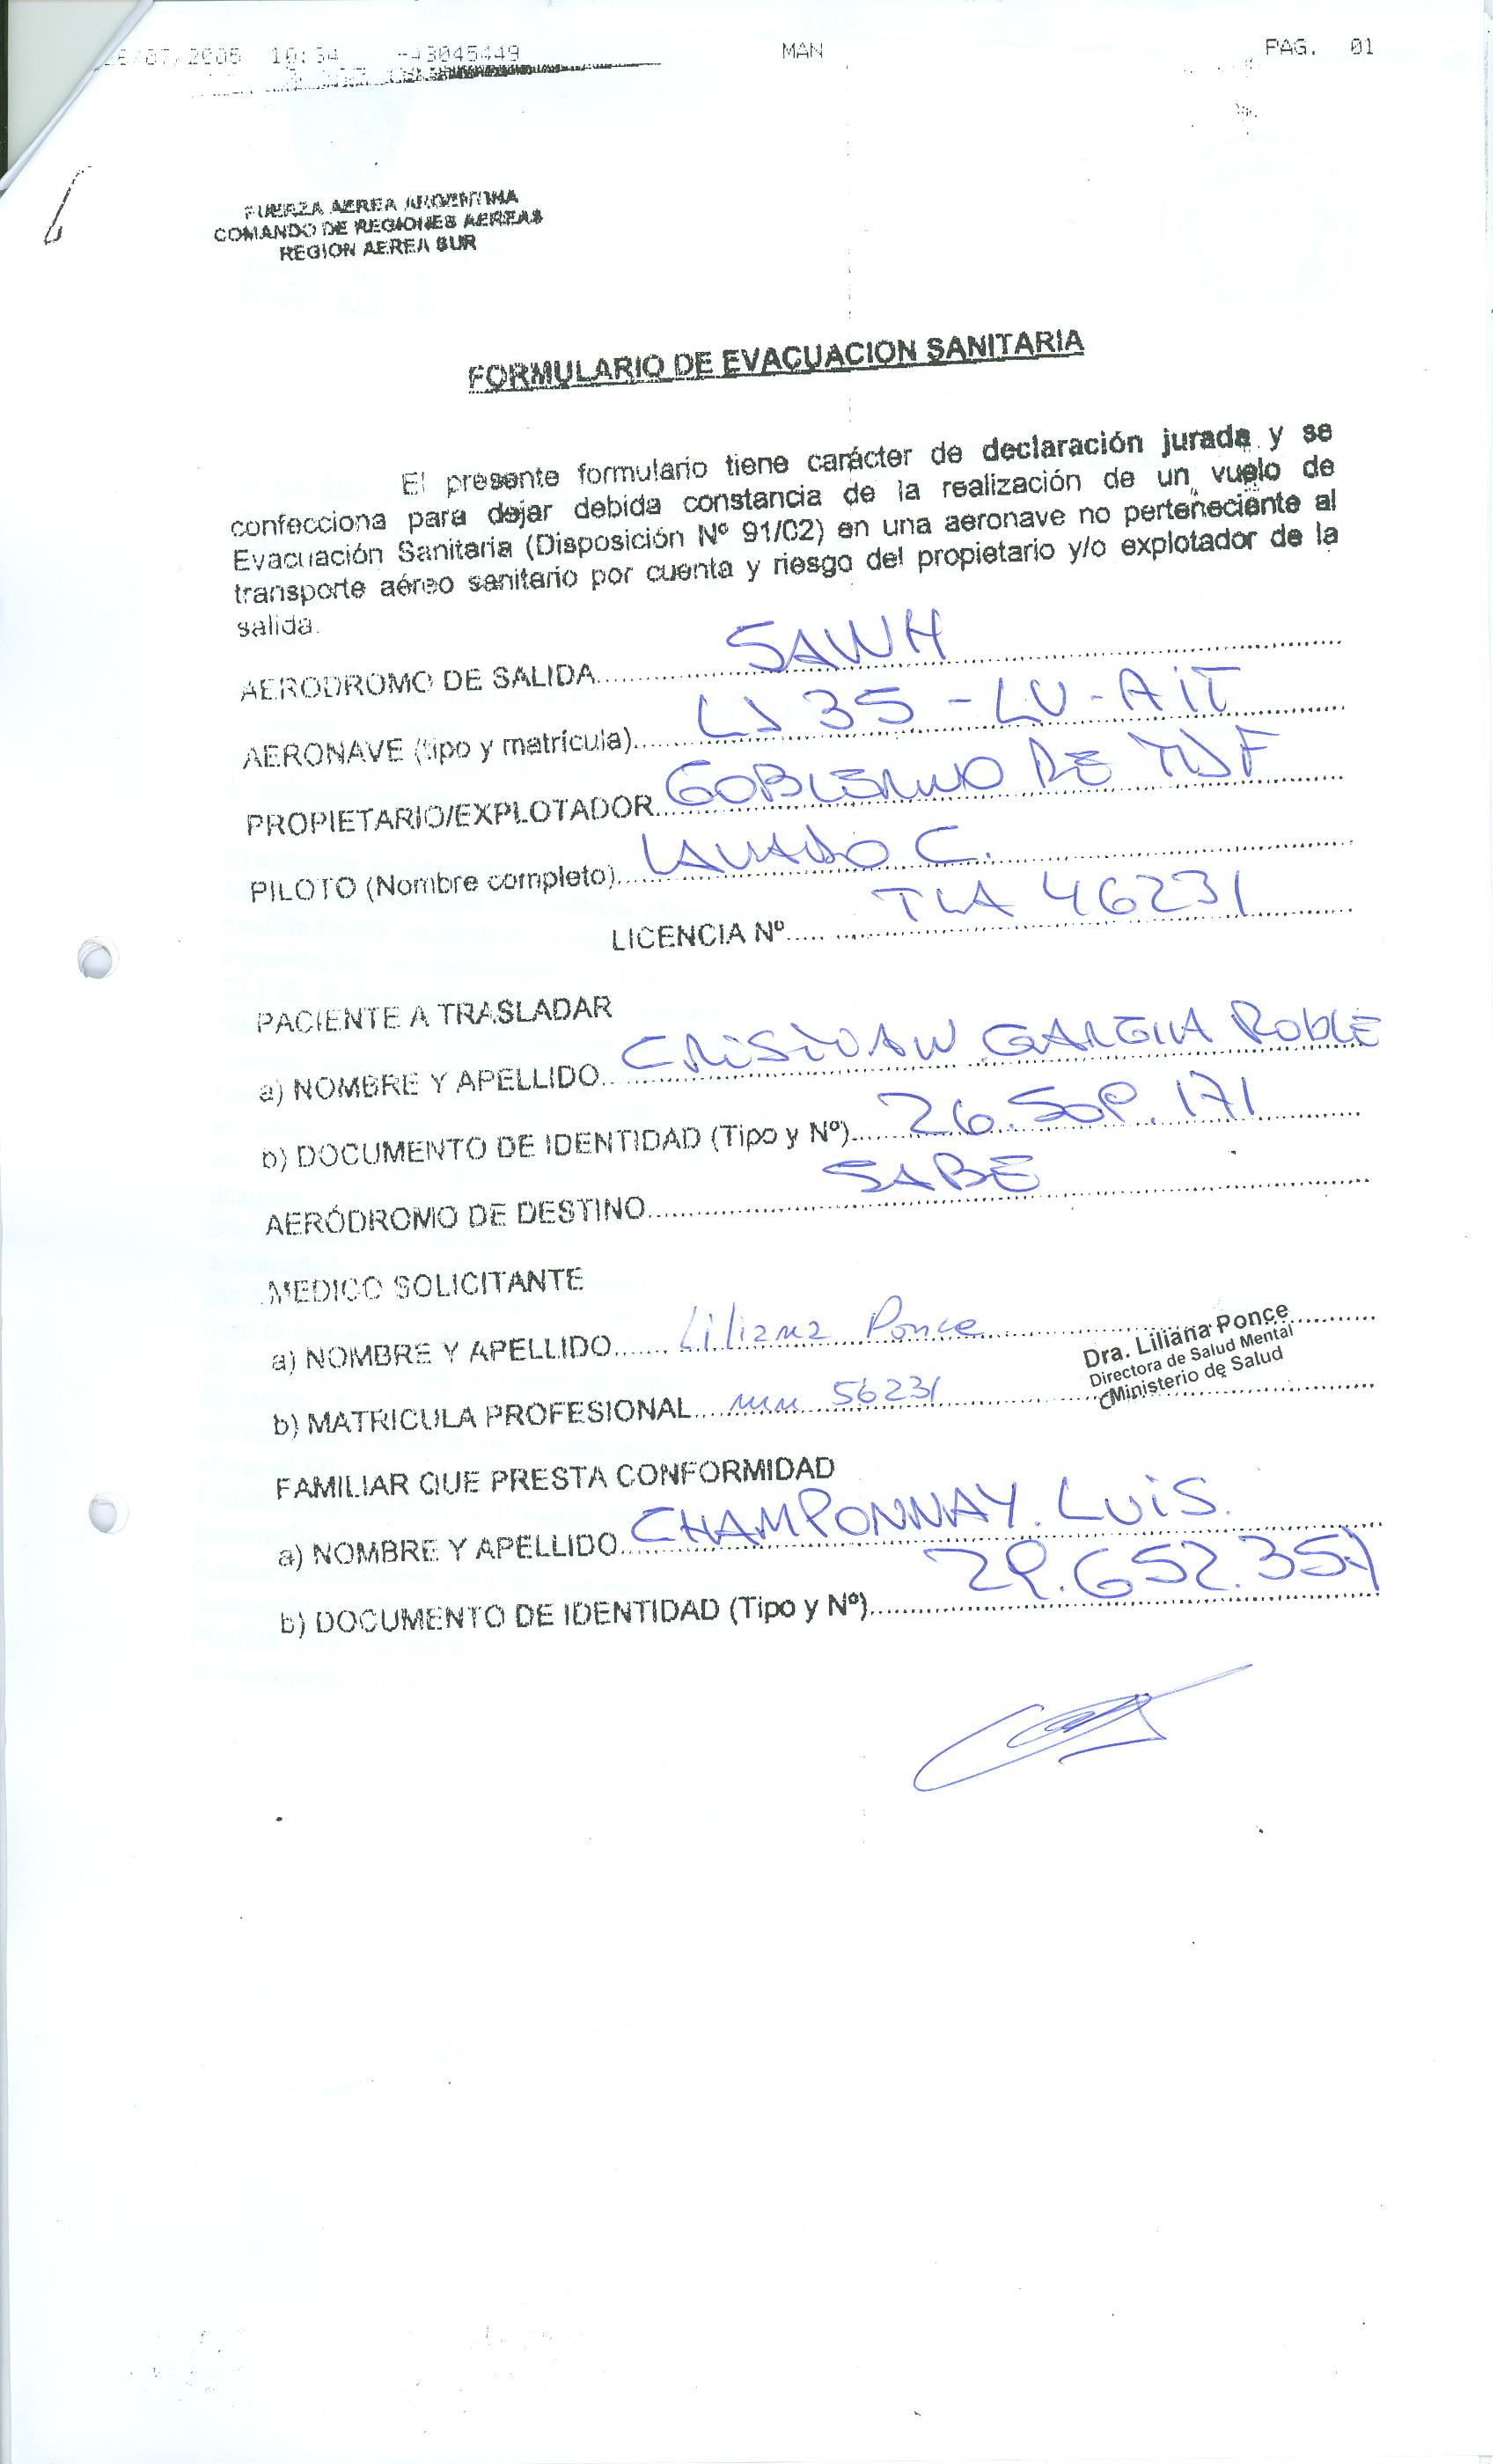 26/07/2005 10:34 -43045449 MAN PAG. 01
FUERZA AEREA ARGENTINA
COMANDO DE REGIONES AEREAS
REGION AEREA SUR
FORMULARIO DE EVACUACION SANITARIA
El presente formulario tiene carácter de declaración jurada y se
confecciona para dejar debida constancia de la realización de un vuelo de
Evacuación Sanitaria (Disposición Nº 91/02) en una aeronave no perteneciente al
transporte aéreo sanitario por cuenta y riesgo del propietario y/o explotador de la
salida.
AERODROMO DE SALIDA SAWH
AERONAVE (tipo y matrícula) LJ 35 - LV - AIT
PROPIETARIO/EXPLOTADOR GOBIERNO DE TDF
PILOTO (Nombre completo) LAVADO C.
LICENCIA Nº TLA 46231
PACIENTE A TRASLADAR
a) NOMBRE Y APELLIDO CRISTIAN GARCIA ROBLE
b) DOCUMENTO DE IDENTIDAD (Tipo y Nº)
AERÓDROMO DE DESTINO SABE
MEDICO SOLICITANTE
a) NOMBRE Y APELLIDO Liliana Ponce
Dra. Liliana Ponce
Directora de Salud Mental
Ministerio de Salud
b) MATRICULA PROFESIONAL MN 56231
FAMILIAR QUE PRESTA CONFORMIDAD
a) NOMBRE Y APELLIDO CHAMPONNAY LUIS.
b) DOCUMENTO DE IDENTIDAD (Tipo y Nº) 29.652.357